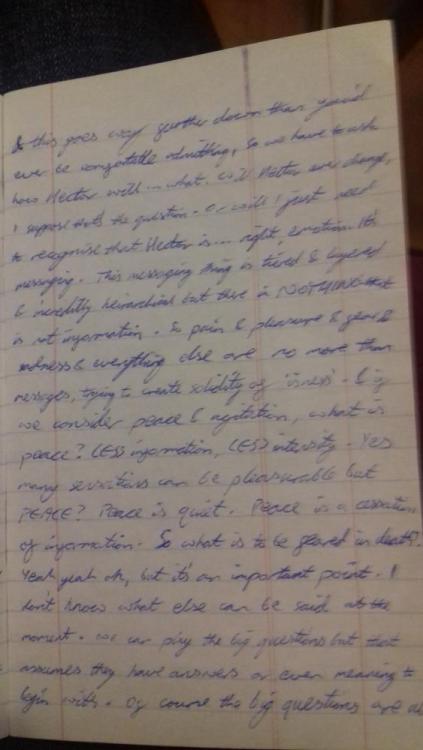 & this goes way further down than you'd
ever be comfortable admitting, so we have to ask
how Hector will... what. Will Hector ever change,
I suppose that's the question. Or will I just need
to recognise that Hector is... right, emotion. It's
messaging. This messaging thing is tiered & layered
& incredibly hierarchical but there is NOTHING that
is not information. So pain & pleasure & fear &
sadness & everything else are no more than
messages, trying to create solidity of 'isness'. & if
we consider peace & agitation, what is
peace? LESS information, LESS intensity. Yes
many sensations can be pleasurable but
PEACE? Peace is quiet. Peace is a cessation
of information. So what is to be feared in death?
Yeah yeah ok, but it's an important point. I
don't know what else can be said at the
moment. We can play the big questions but that
assumes they have answers or even meaning to
begin with. Of course the big questions are